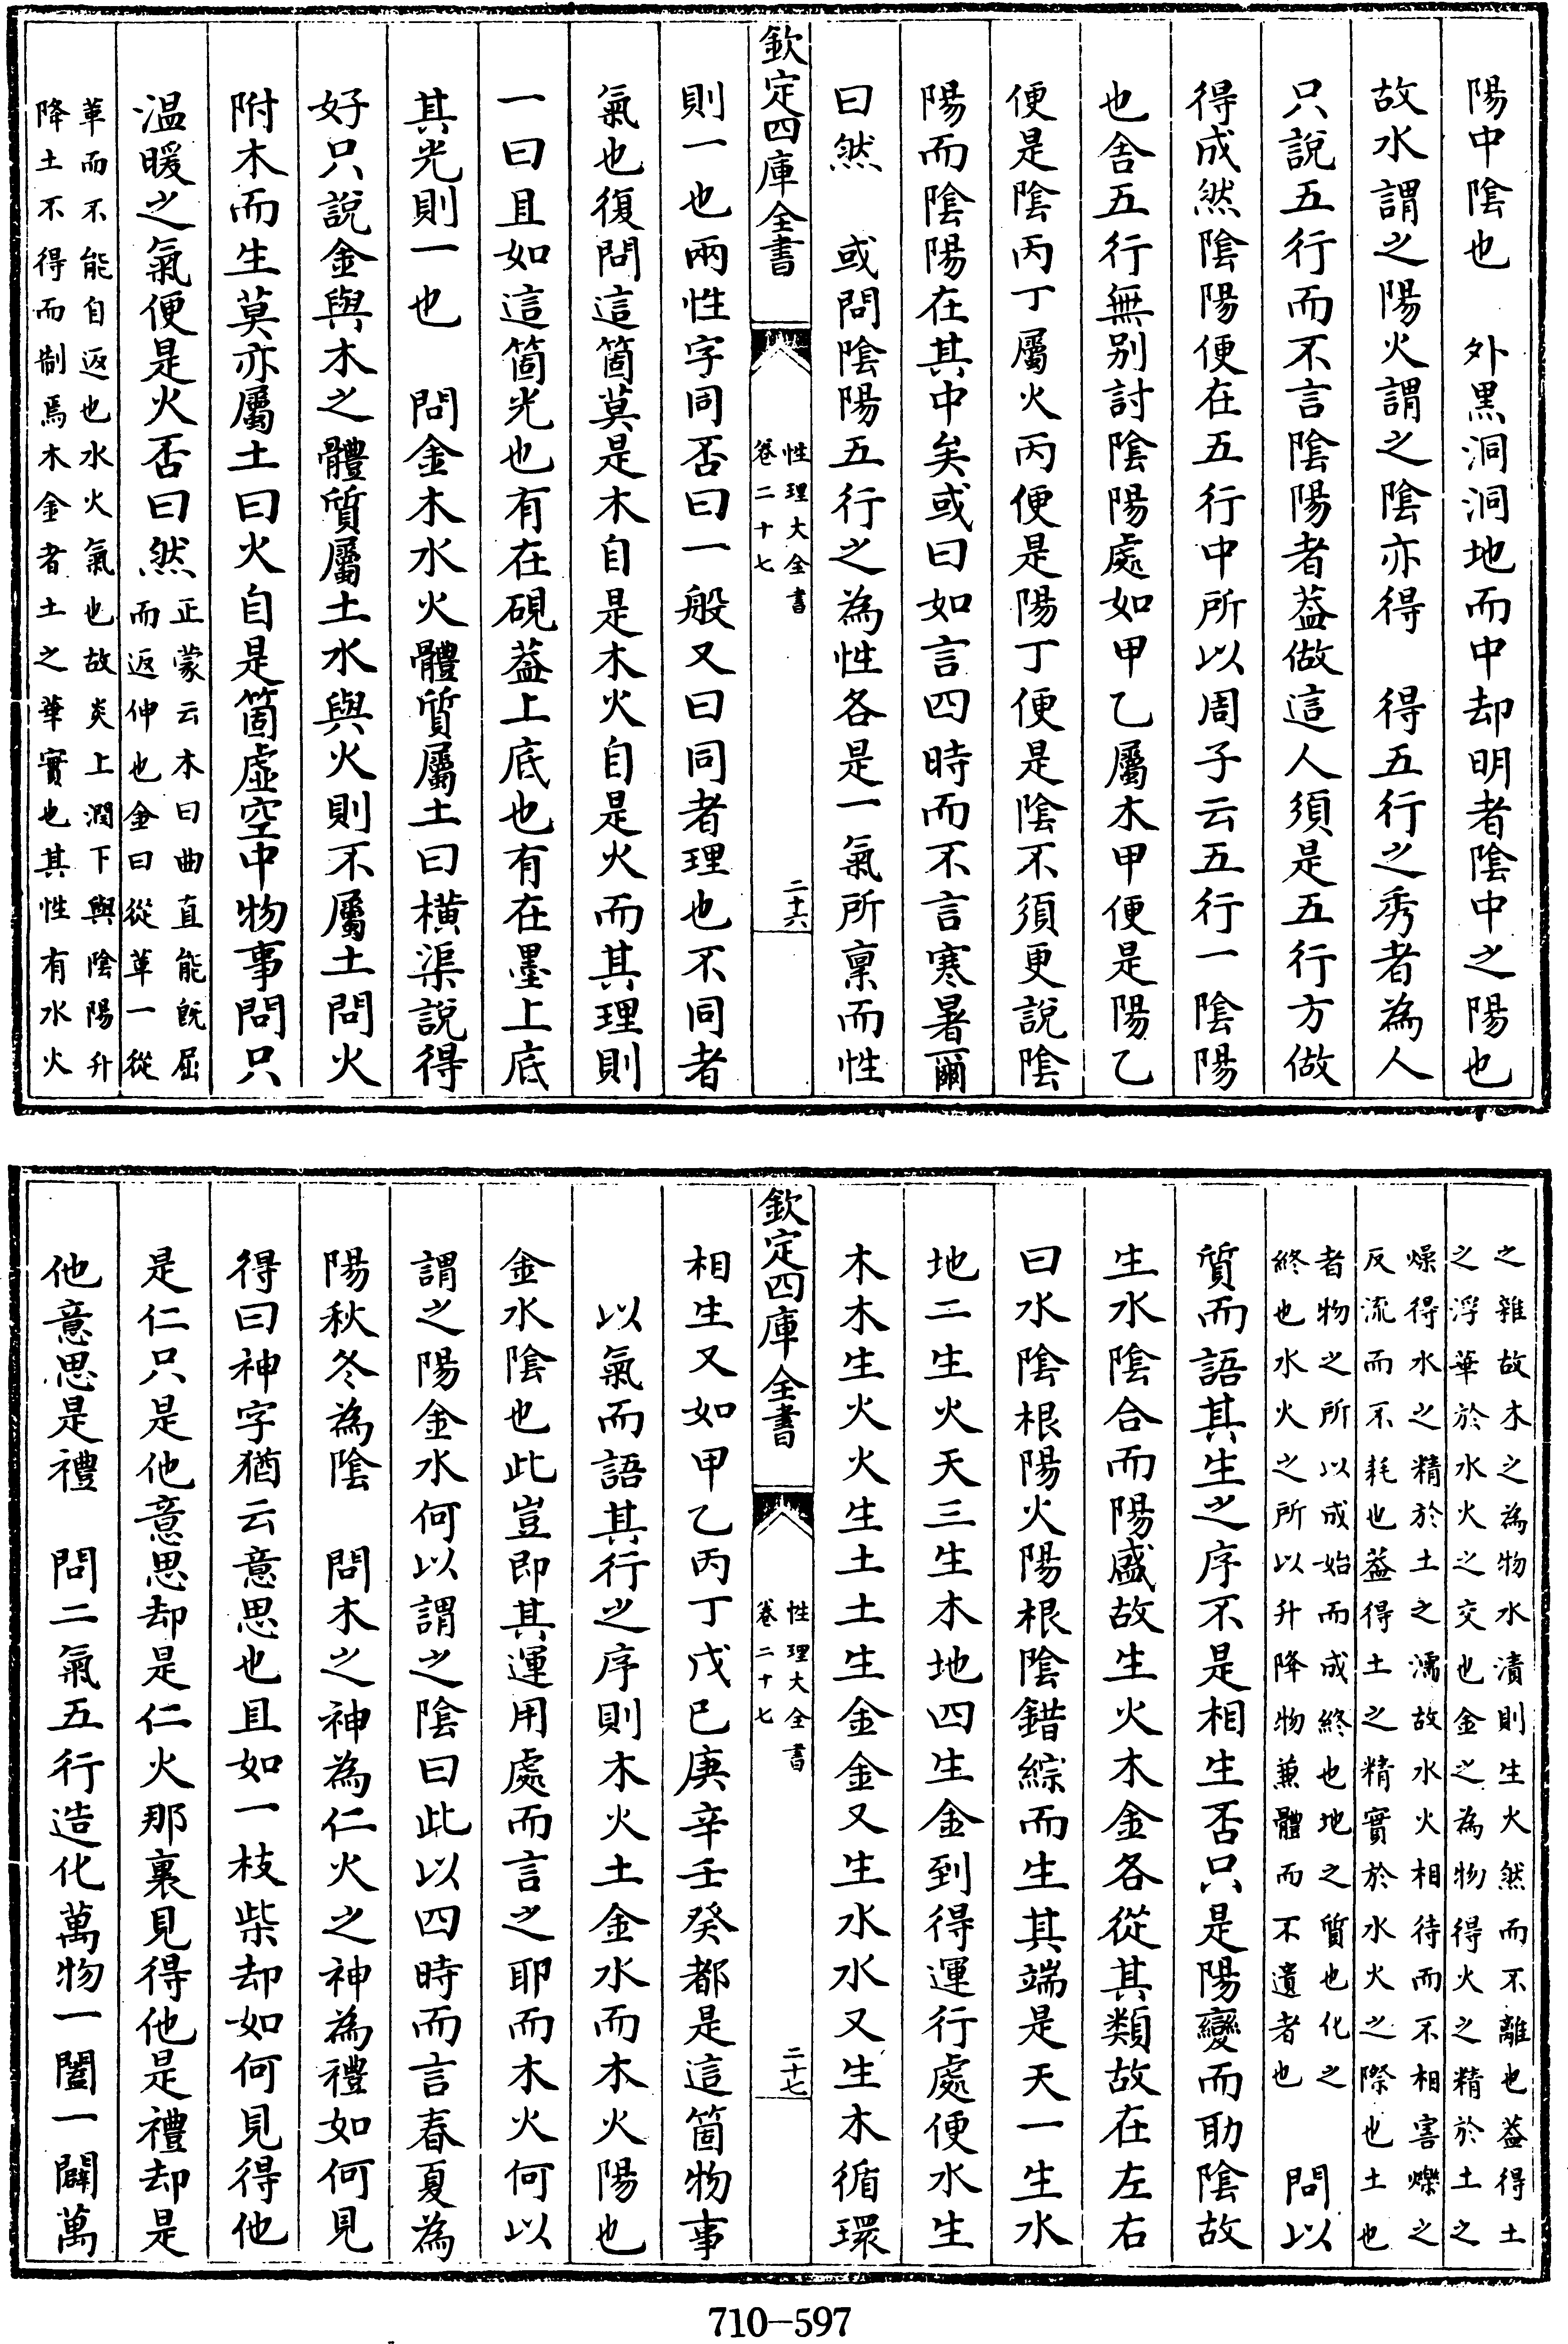 陽中陰也　外黒洞洞地而中却明者陰中之陽也
故水謂之陽火謂之陰亦得　得五行之秀者為人
只說五行而不言陰陽者葢做這人須是五行方做
得成然陰陽便在五行中所以周子云五行一陰陽
也舍五行無别討陰陽處如甲乙屬木甲便是陽乙
便是陰丙丁屬火丙便是陽丁便是陰不須更說陰
陽而陰陽在其中矣或曰如言四時而不言寒暑爾
曰然　或問陰陽五行之為性各是一氣所稟而性
欽定四庫全書
性理大全書
卷二十七
二十六
則一也兩性字同否曰一般又曰同者理也不同者
氣也復問這箇莫是木自是木火自是火而其理則
一曰且如這箇光也有在硯葢上底也有在墨上底
其光則一也　問金木水火體質屬土曰橫渠說得
好只說金與木之體質屬土水與火則不屬土問火
附木而生莫亦屬土曰火自是箇虛空中物事問只
温暖之氣便是火否曰然
正蒙云木曰曲直能旣屈
而返伸也金曰從革一從
革而不能自返也水火氣也故炎上潤下與陰陽升
降土不得而制焉木金者土之華實也其性有水火
之雜故木之為物水漬則生火然而不離也葢得土
之浮華於水火之交也金之為物得火之精於土之
燥得水之精於土之濡故水火相待而不相害爍之
反流而不耗也葢得土之精實於水火之際也土也
者物之所以成始而成終也地之質也化之
終也水火之所以升降物兼體而不遺者也
問以
質而語其生之序不是相生否只是陽變而助陰故
生水陰合而陽盛故生火木金各從其類故在左右
曰水陰根陽火陽根陰錯綜而生其端是天一生水
地二生火天三生木地四生金到得運行處便水生
木木生火火生土土生金金又生水水又生木循環
欽定四庫全書
性理大全書
卷二十七
二十七
相生又如甲乙丙丁戊已庚辛壬癸都是這箇物事
以氣而語其行之序則木火土金水而木火陽也
金水陰也此豈即其運用處而言之耶而木火何以
謂之陽金水何以謂之陰曰此以四時而言春夏為
陽秋冬為陰　問木之神為仁火之神為禮如何見
得曰神字猶云意思也且如一枝柴却如何見得他
是仁只是他意思却是仁火那裏見得他是禮却是
他意思是禮　問二氣五行造化萬物一闔一闢萬
710-597